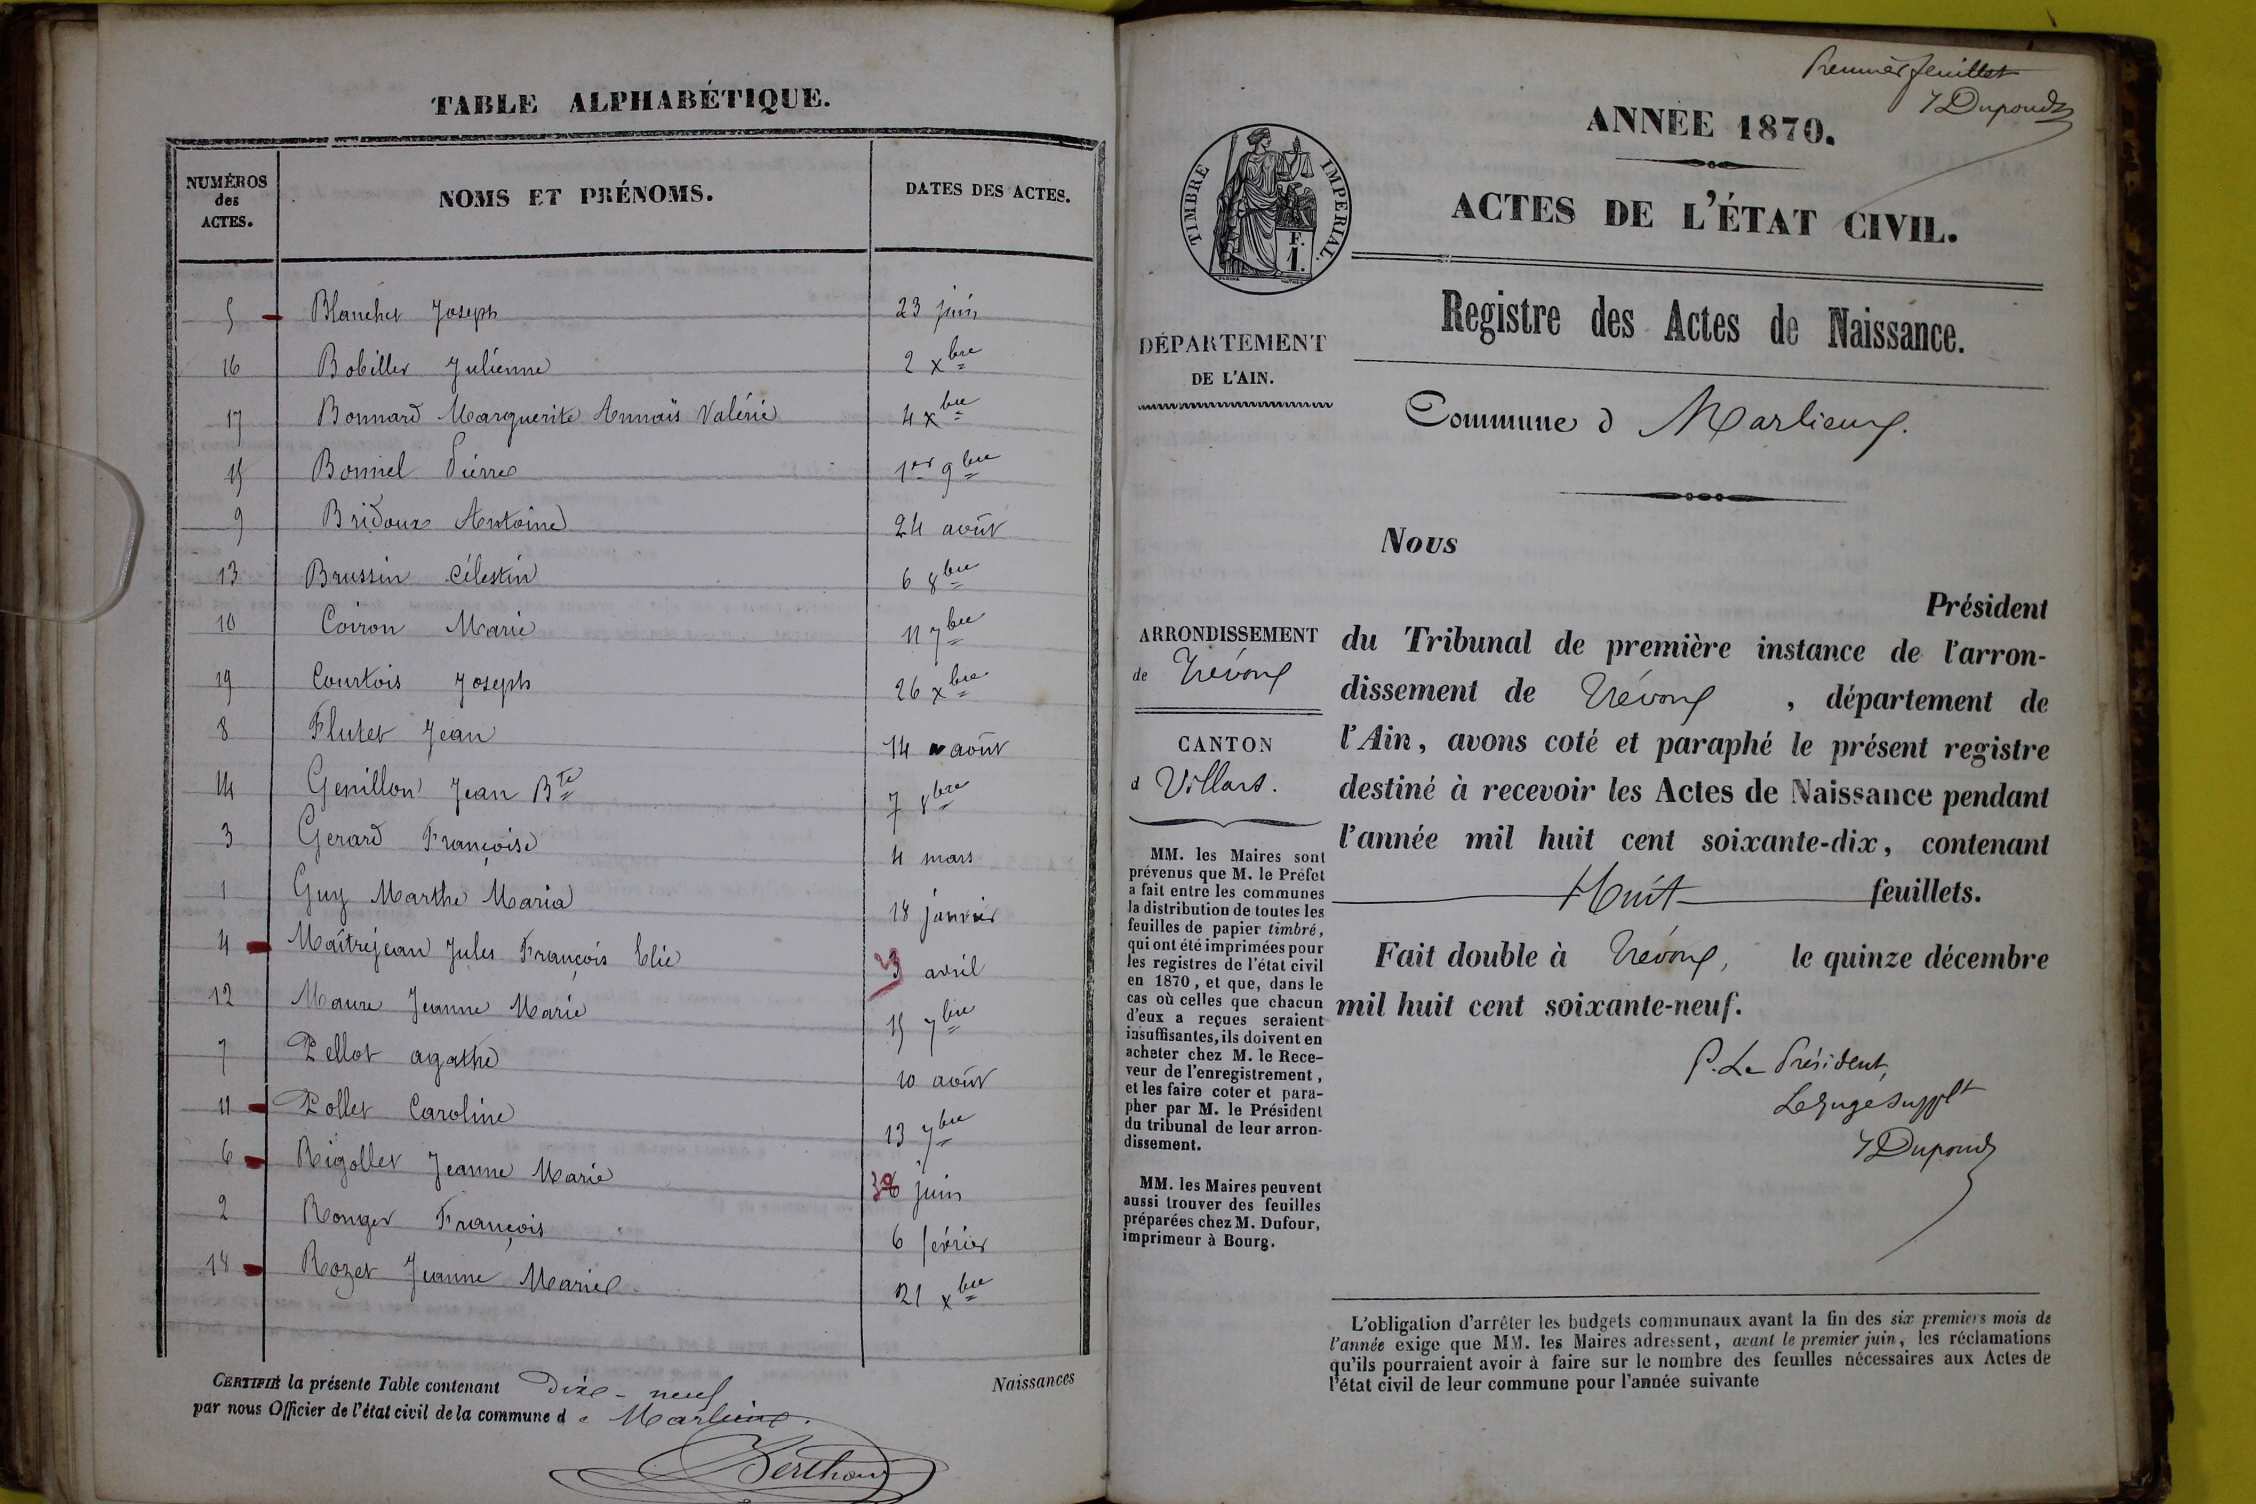 TABLE ALPHABÉTIQUE.
NUMÉROS
des
ACTES.
NOMS ET PRÉNOMS.
DATES DES ACTES.
5 Blanchet Joseph 23 juin
16 Bobillet Julienne 2 Xbre
17 Bonnard Marguerite Annaïs Valérie 4 Xbre
15 Bonnel Pierre 1er 9bre
9 Bridoux Antoine 24 août
13 Brussin Célestin 6 8bre
10 Coiron Marie 11 7bre
19 Courtois Joseph 26 Xbre
8 Flutet Jean 14 août
14 Genillon Jean Bte 7 8bre
3 Gerard Françoise 4 mars
1 Guy Marthe Maria 18 janvier
4 Maîtrejean Jules François Elie 23 avril
12 Maure Jeanne Marie 15 7bre
7 Pellot agathe 10 août
11 Pollet Caroline 13 7bre
6 Rigollet Jeanne Marie juin
2 Ronger François 6 février
18 Rozet Jeanne Marie 21 Xbre
CERTIFIÉ la présente Table contenant Dix-neuf Naissances
par nous Officier de l'état civil de la commune de Marlieux.
Berthoud
Premier feuillet
Dupond
ANNÉE 1870.
TIMBRE IMPERIAL.
F.
1.
ACTES DE L'ÉTAT CIVIL.
Registre des Actes de Naissance.
DÉPARTEMENT
DE L'AIN.
Commune d Marlieux.
ARRONDISSEMENT
de Trévoux
CANTON
d Villars.
MM. les Maires sont
prévenus que M. le Préfet
a fait entre les communes
la distribution de toutes les
feuilles de papier timbré,
qui ont été imprimées pour
les registres de l'état civil
en 1870, et que, dans le
cas où celles que chacun
d'eux a reçues seraient
insuffisantes, ils doivent en
acheter chez M. le Rece-
veur de l'enregistrement,
et les faire coter et para-
pher par M. le Président
du tribunal de leur arron-
dissement.
MM. les Maires peuvent
aussi trouver des feuilles
préparées chez M. Dufour,
imprimeur à Bourg.
Nous
Président
du Tribunal de première instance de l'arron-
dissement de Trévoux, département de
l'Ain, avons coté et paraphé le présent registre
destiné à recevoir les Actes de Naissance pendant
l'année mil huit cent soixante-dix, contenant
Huit feuillets.
Fait double à Trévoux, le quinze décembre
mil huit cent soixante-neuf.
P. Le Président,
Le Juge suppt
Dupond
L'obligation d'arrêter les budgets communaux avant la fin des six premiers mois de
l'année exige que MM. les Maires adressent, avant le premier juin, les réclamations
qu'ils pourraient avoir à faire sur le nombre des feuilles nécessaires aux Actes de
l'état civil de leur commune pour l'année suivante